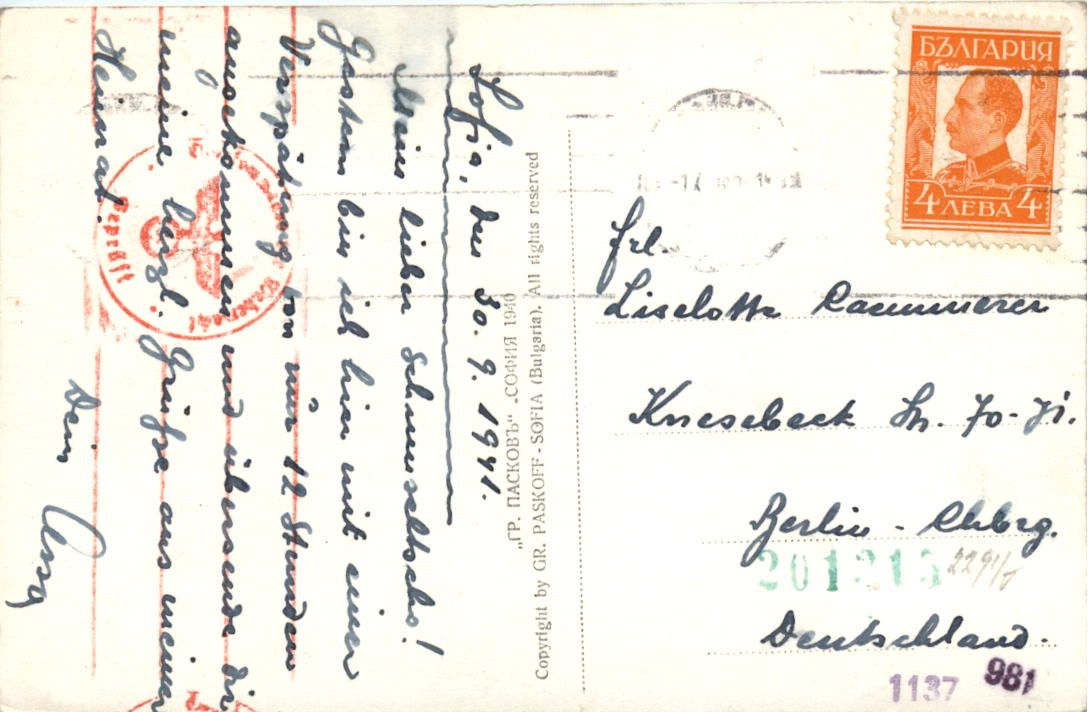 Sofia, den 30. 9. 1941.
Mein lieber
Gestern bin ich hier mit einer
Verspätung von nur 12 Stunden
angekommen und übersende dir
meine herzl. Grüße aus meiner
Heimat.
Dein
„ГР. ПАСКОВЪ“ - СОФИЯ 1940
Copyright by GR. PASKOFF - SOFIA (Bulgaria). All rights reserved
БЪЛГАРИЯ
4 ЛЕВА 4
Frl.
Liselotte Cammerer
Knesebeck Str. 70-71.
Berlin - Chbrg.
201213
Deutschland.
1137
981
Geprüft